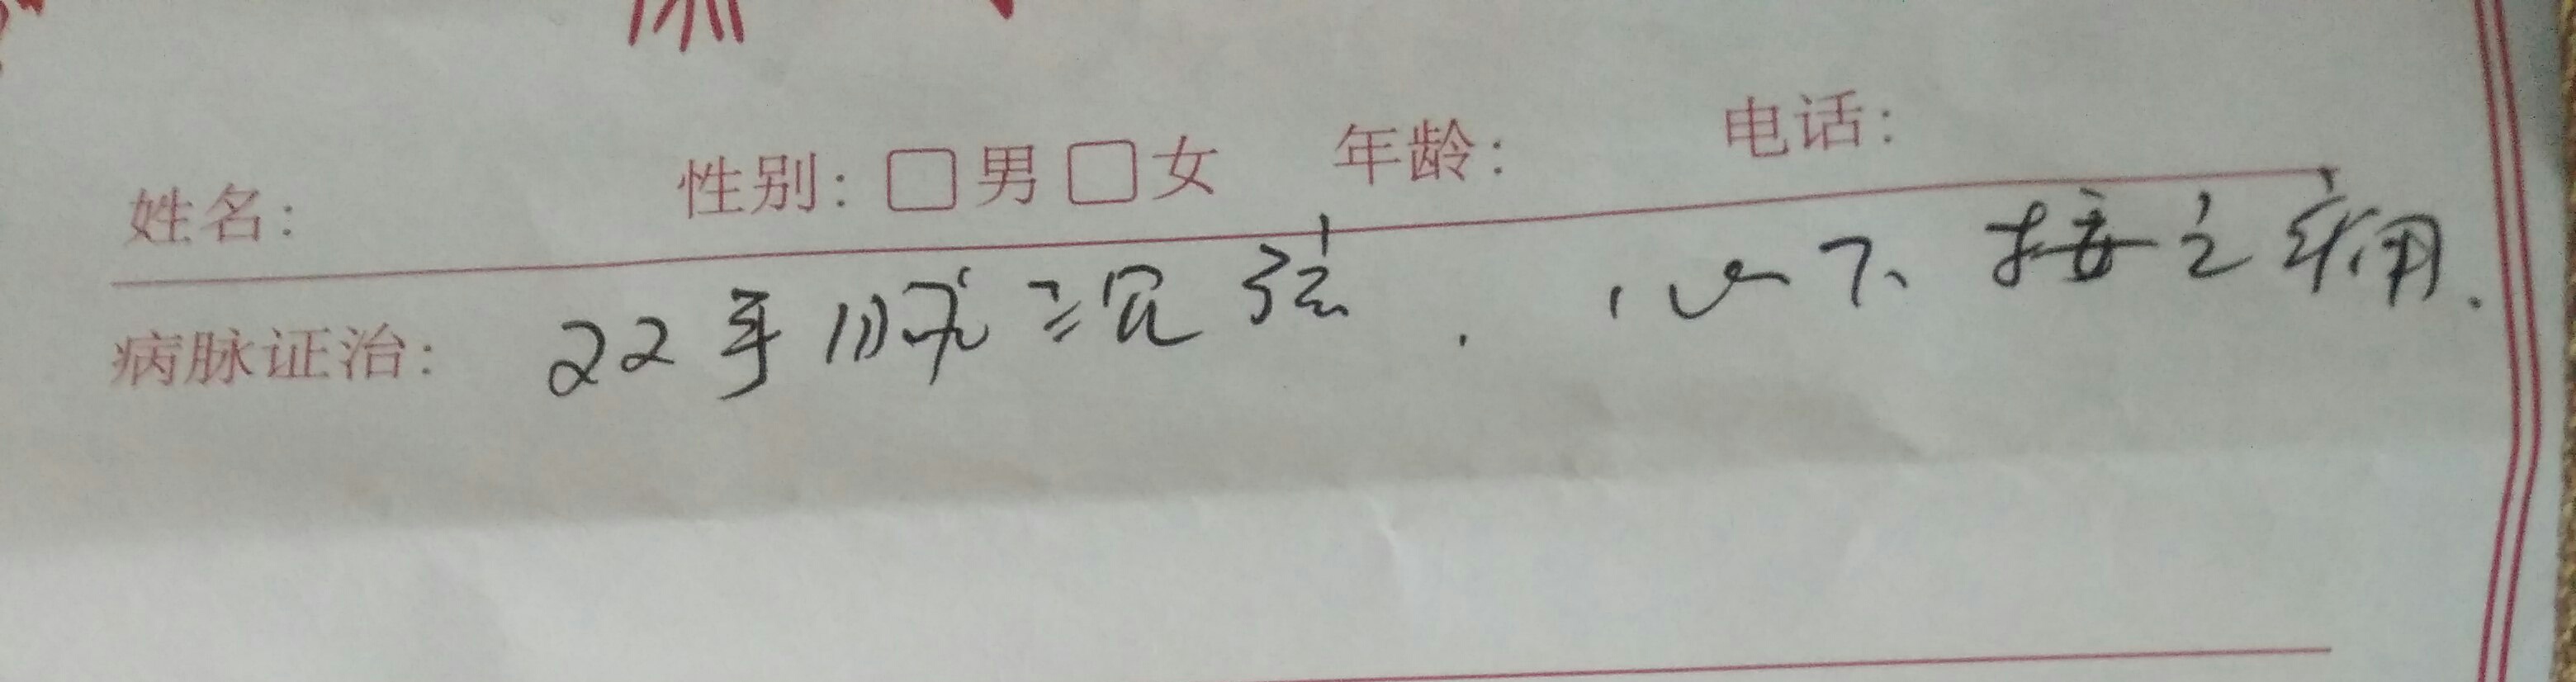 姓名: 性别: □男□女 年龄: 电话:
病脉证治: 22手脉沉弦. 心下按之痛.